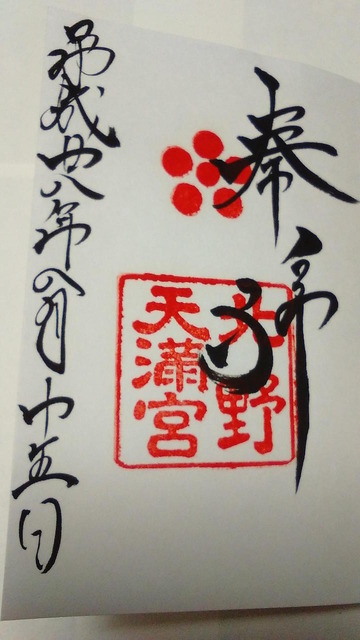 奉拝
北野
天満宮
平成廿八年八月廿五日